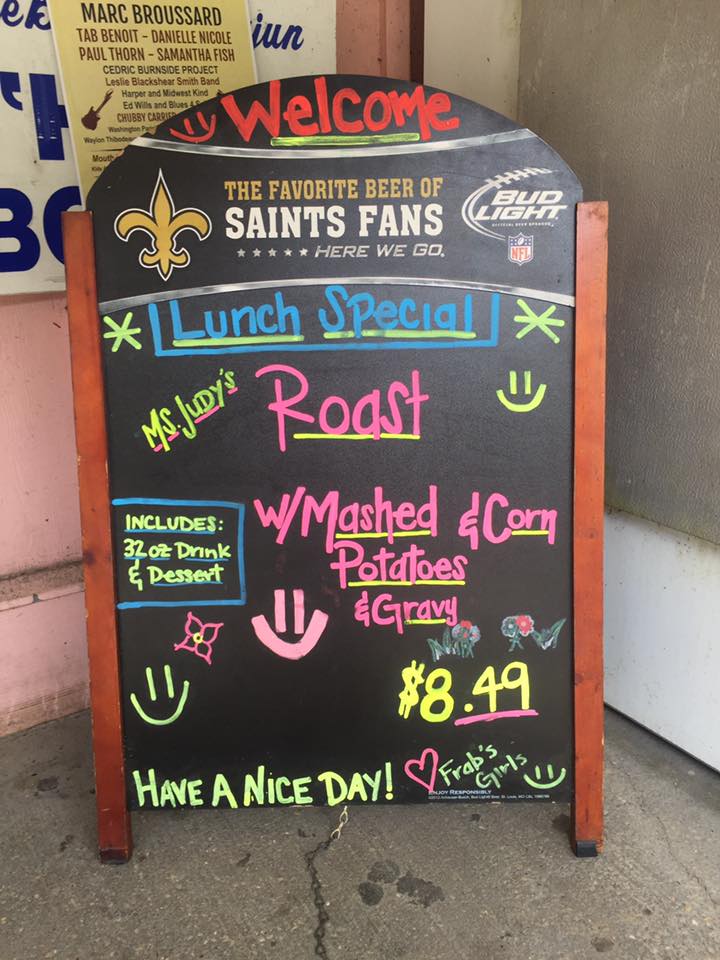 MARC BROUSSARD
TAB BENOIT - DANIELLE NICOLE
PAUL THORN - SAMANTHA FISH
CEDRIC BURNSIDE PROJECT
Leslie Blackshear Smith Band
Harper and Midwest Kind
Ed Wills and Blues 4
CHUBBY CARRIER
Washington
Waylon
Welcome
THE FAVORITE BEER OF
SAINTS FANS
HERE WE GO.
BUD
LIGHT
NFL
Lunch Special
Ms. Judy's
Roast
INCLUDES:
32 oz Drink
& Dessert
w/Mashed & Corn
Potatoes
& Gravy
$8.49
HAVE A NICE DAY!
Frab's
Girls
ENJOY RESPONSIBLY